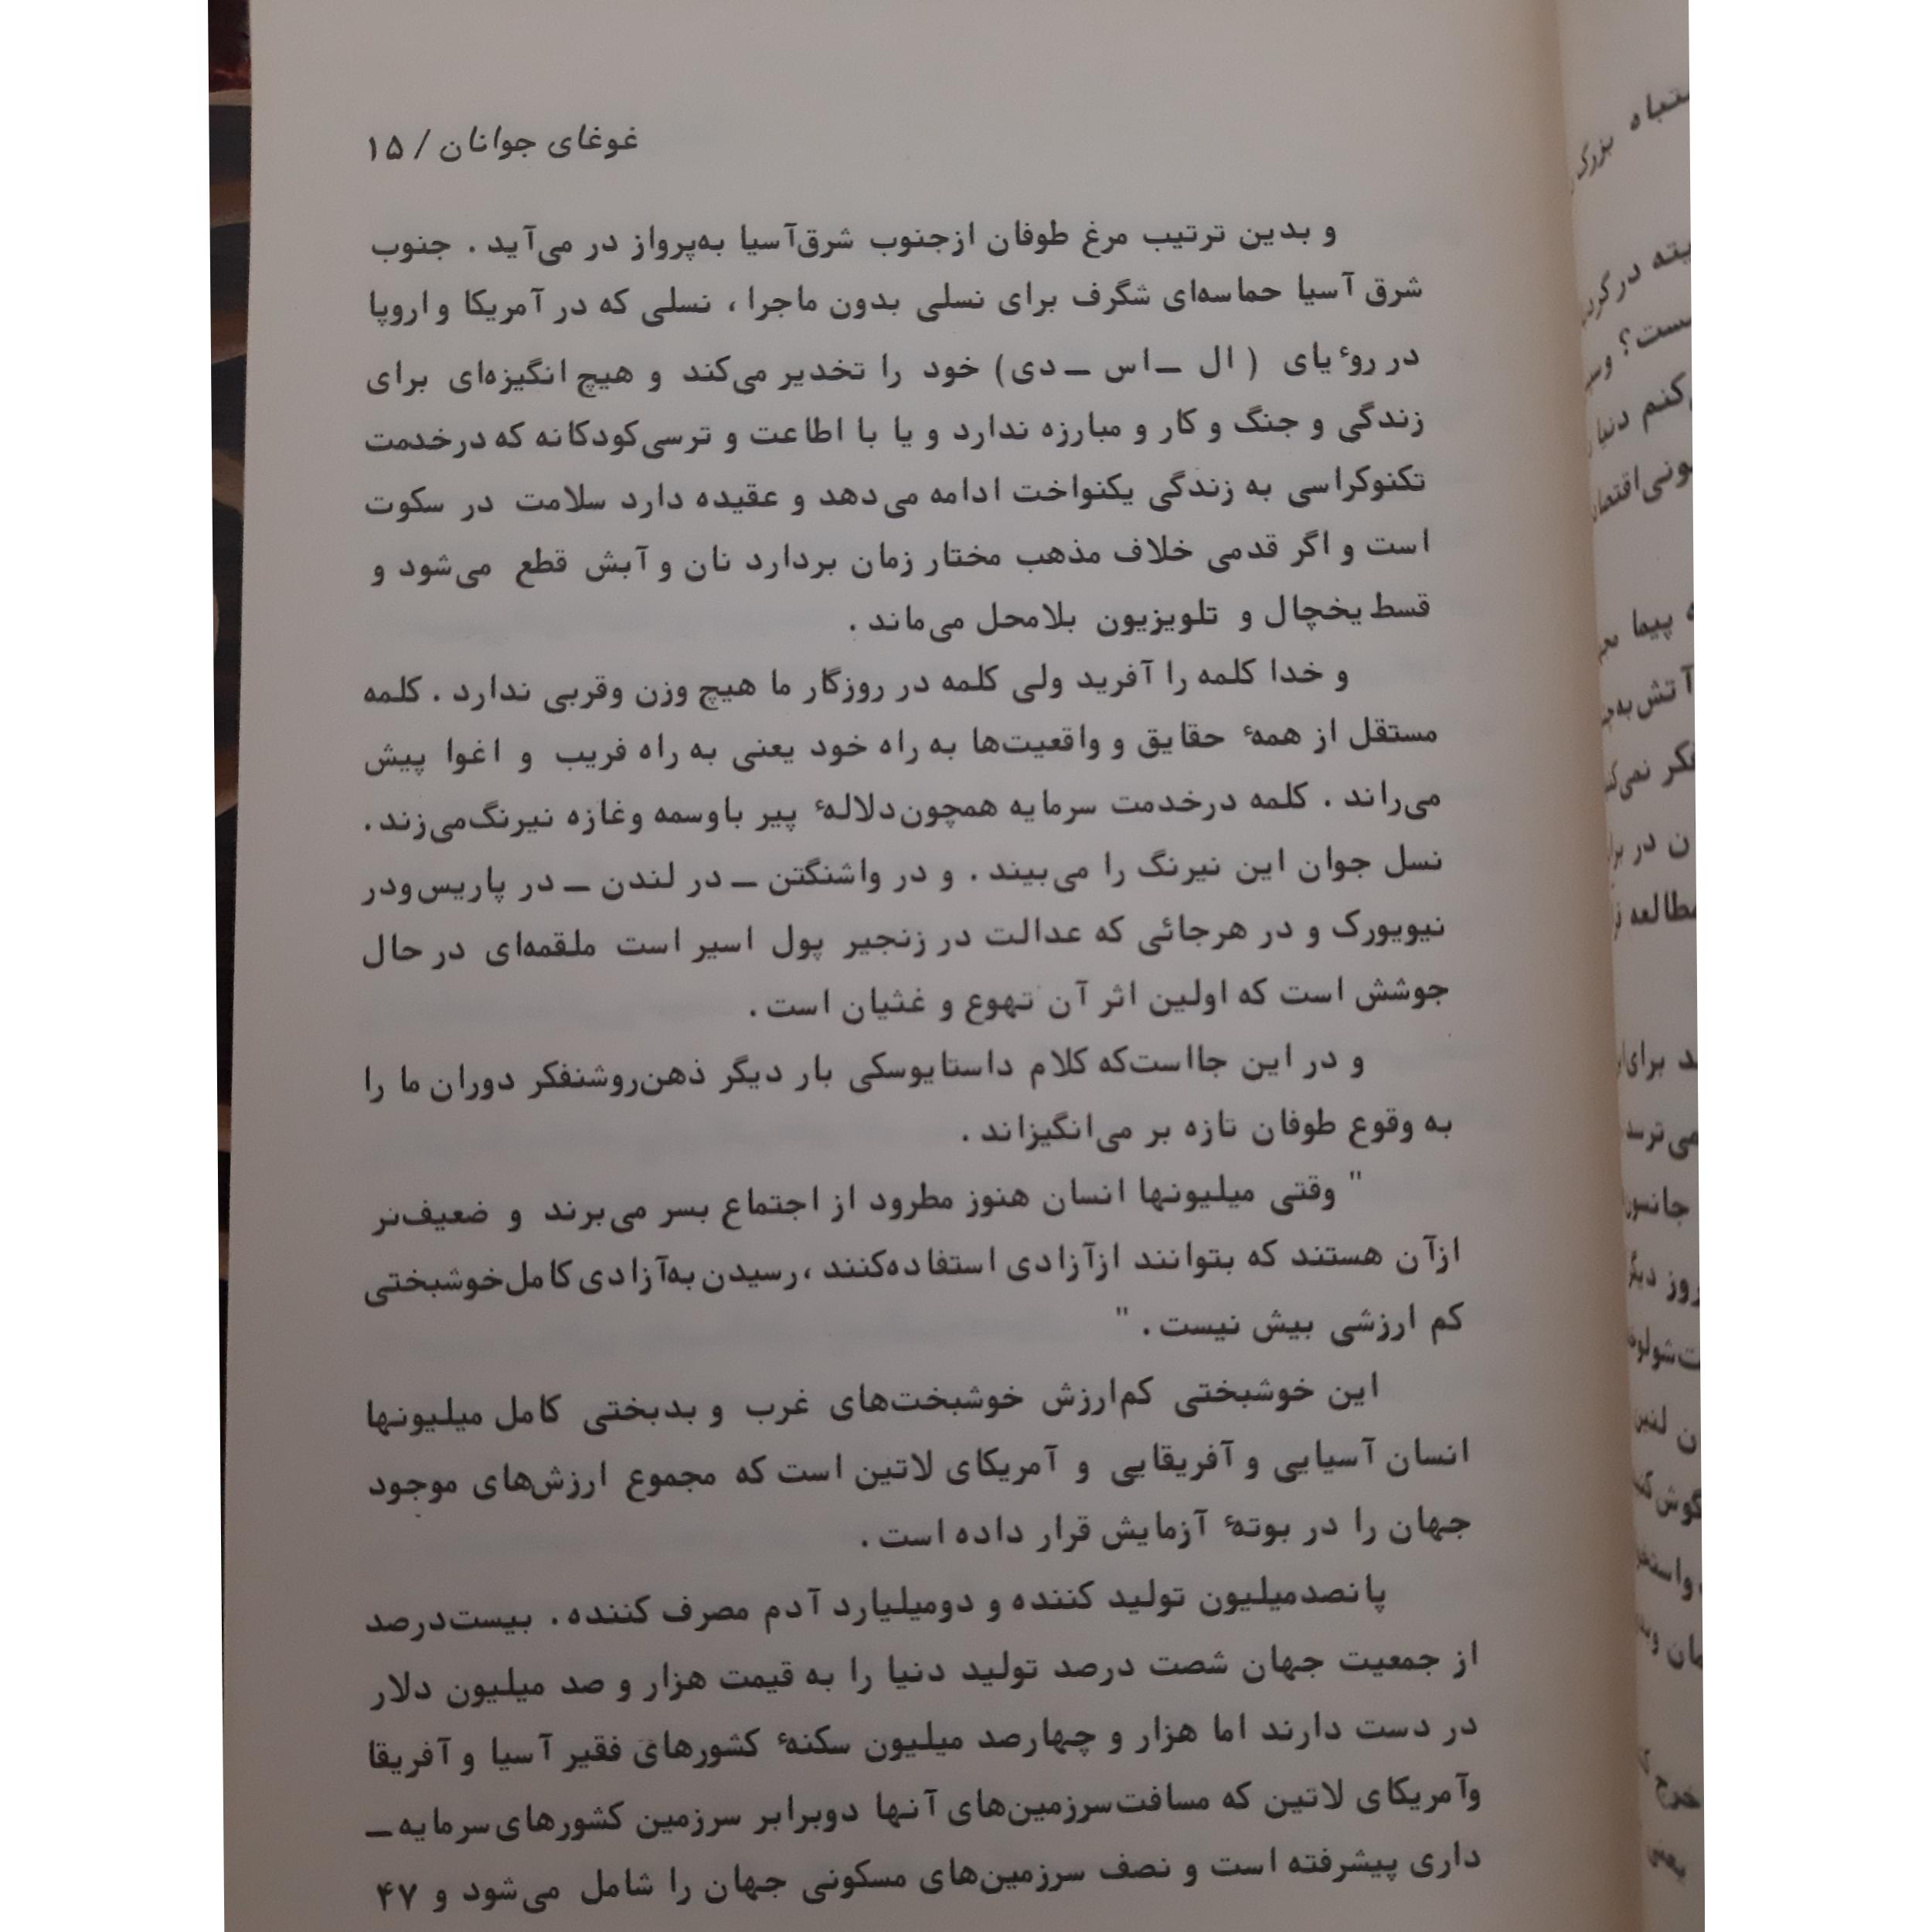 غوغای جوانان / ۱۵
و بدین ترتیب مرغ طوفان ازجنوب شرق‌آسیا به‌پرواز در می‌آید . جنوب
شرق آسیا حماسه‌ای شگرف برای نسلی بدون ماجرا ، نسلی که در آمریکا و اروپا
در روٴیای ( ال ــ اس ــ دی) خود را تخدیر می‌کند و هیچ انگیزه‌ای برای
زندگی و جنگ و کار و مبارزه ندارد و یا با اطاعت و ترسی‌کودکانه که درخدمت
تکنوکراسی به زندگی یکنواخت ادامه می‌دهد و عقیده دارد سلامت در سکوت
است و اگر قدمی خلاف مذهب مختار زمان بردارد نان و آبش قطع می‌شود و
قسط یخچال و تلویزیون بلامحل می‌ماند .
و خدا کلمه را آفرید ولی کلمه در روزگار ما هیچ وزن وقربی ندارد . کلمه
مستقل از همهٔ حقایق و واقعیت‌ها به راه خود یعنی به راه فریب و اغوا پیش
می‌راند . کلمه درخدمت سرمایه همچون‌دلالهٔ پیر باوسمه وغازه نیرنگ‌می‌زند .
نسل جوان این نیرنگ را می‌بیند . و در واشنگتن ــ در لندن ــ در پاریس‌ودر
نیویورک و در هرجائی که عدالت در زنجیر پول اسیر است ملقمه‌ای در حال
جوشش است که اولین اثر آن تهوع و غثیان است .
و در این جااست‌که کلام داستایوسکی بار دیگر ذهن‌روشنفکر دوران ما را
به وقوع طوفان تازه بر می‌انگیزاند .
" وقتی میلیونها انسان هنوز مطرود از اجتماع بسر می‌برند و ضعیف‌تر
ازآن هستند که بتوانند ازآزادی استفاده‌کنند ،رسیدن به‌آزادی کامل‌خوشبختی
کم ارزشی بیش نیست . "
این خوشبختی کم‌ارزش خوشبخت‌های غرب و بدبختی کامل میلیونها
انسان آسیایی و آفریقایی و آمریکای لاتین است که مجموع ارزش‌های موجود
جهان را در بوتهٔ آزمایش قرار داده است .
پانصدمیلیون تولید کننده و دومیلیارد آدم مصرف کننده . بیست‌درصد
از جمعیت جهان شصت درصد تولید دنیا را به قیمت هزار و صد میلیون دلار
در دست دارند اما هزار و چهارصد میلیون سکنهٔ کشورهای فقیر آسیا و آفریقا
وآمریکای لاتین که مسافت‌سرزمین‌های آنها دوبرابر سرزمین کشورهای سرمایه ــ
داری پیشرفته است و نصف سرزمین‌های مسکونی جهان را شامل می‌شود و ۴۷